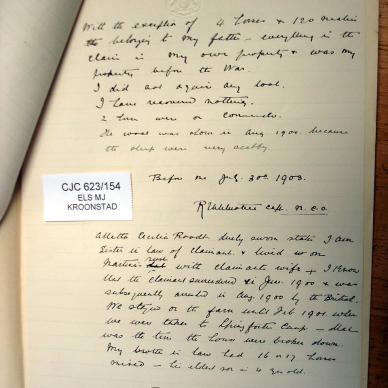 With the exception of 4 horses & 120 mealies
the belonging to my father - everything in the
claim is my own property & was my
property before the War.
I did not again any loot.
I have recovered nothing.
2 horses were on Commando.
The wool was shorn in Aug 1900 because
the sheep were very scabby.
Before me July 30th 1903.
Capt. M.C.O.
CJC 623/154
ELS MJ
KROONSTAD
Aletta Cecilia Roodt duly sworn states I am
Sister in law of claimant & lived on
with claimants wife + I know
that the Claimant surrendered in June 1900 & was
subsequently arrested in Aug 1900 by the British.
We stayed on the farm until Feb 1901 when
we were taken to Springfontein Camp - that
was the time the house were broken down.
My brother in law had 16 or 17 horses
mixed - the eldest son is 4 yrs old.